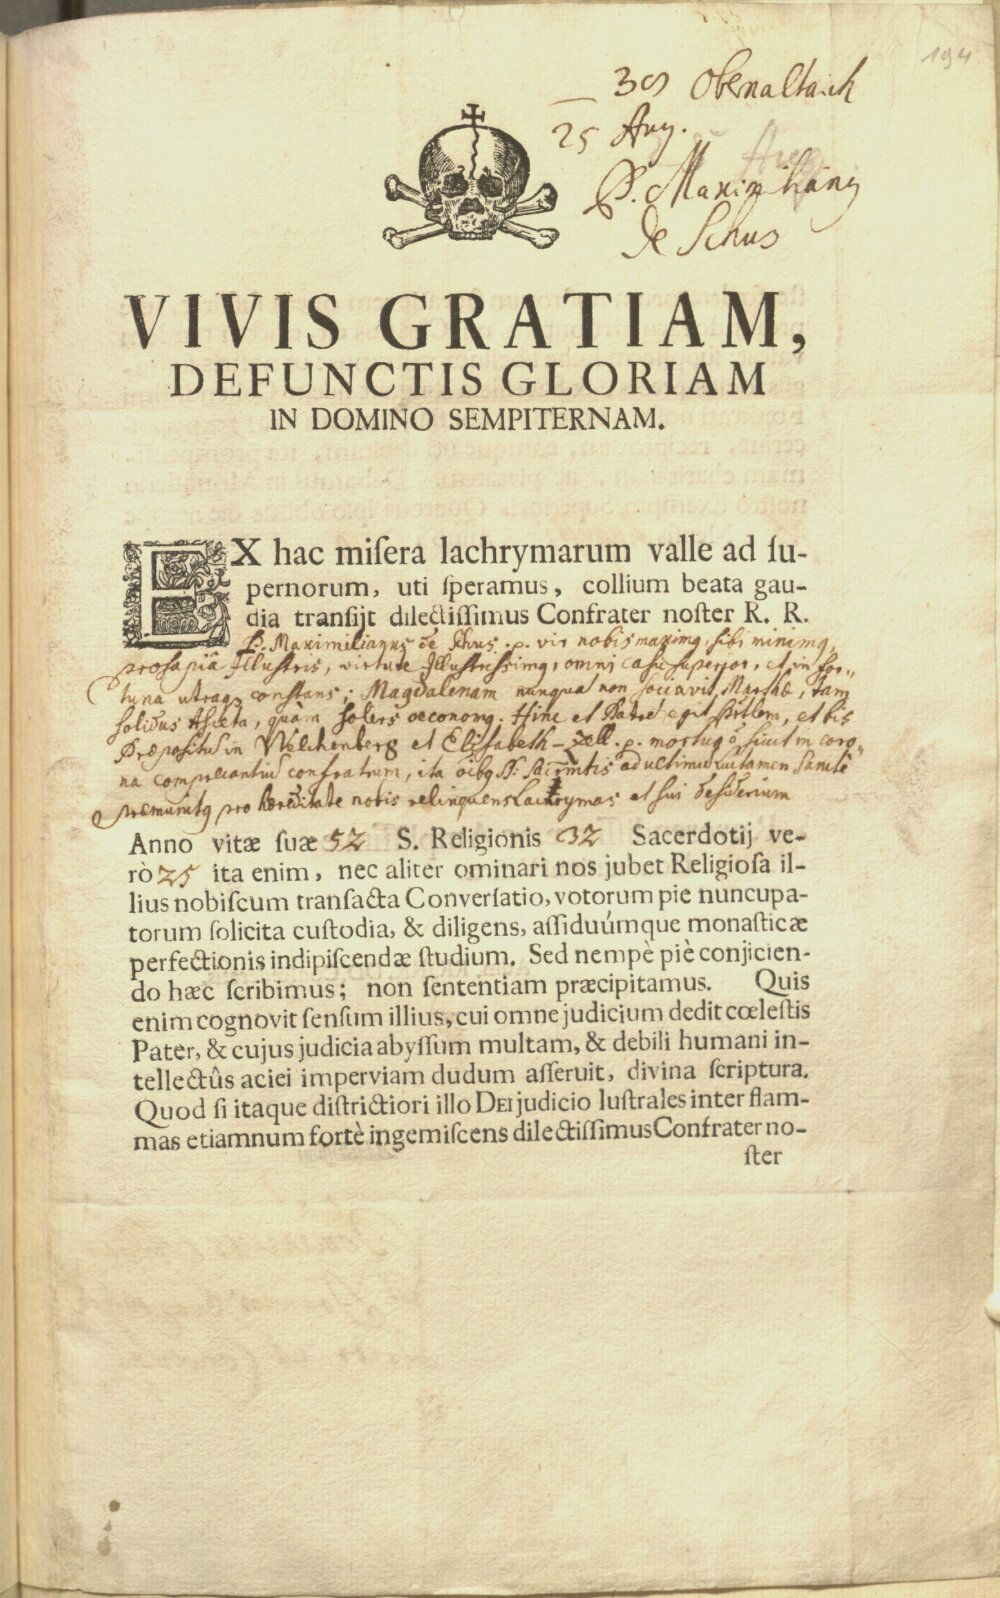 194
Oberaltaich
25 Aug.
P. Maximilianq
de Schus
VIVIS GRATIAM,
DEFUNCTIS GLORIAM
IN DOMINO SEMPITERNAM.
EX hac miſera lachrymarum valle ad ſu-
pernorum, uti ſperamus, collium beata gau-
dia tranſijt dilectiſſimus Confrater noſter R. R.
P. Maximilianus de Schus . p. vir nobis maximq, ſibi minimq,
proſapiâ Illuſtris, virtute Illuſtriſsimq, omni caſu ſuperior, et in for-
tuna utraq conſtans; Magdalenam nunquā non ſociavit Marthæ, tam
ſolidus Aſceta, quàm ſolers oeconomq. Hinc et Patrē egit Prīlem, et bis
Præpoſitus in Welchenberg et Eliſabeth-Zell. p. mortuq ē, ſicut in coro-
na compreca­ntiū confratrum, ita oībq SS. Sacrm̄tis ad ultimū luctamen ſanctè
præmunitq pro hæreditate nobis relinquens Lachrymas et ſui deſiderium
Anno vitæ ſuæ 52 S. Religionis 32 Sacerdotij ve-
rò 25 ita enim, nec aliter ominari nos jubet Religioſa il-
lius nobiſcum tranſacta Converſatio, votorum pie nuncupa-
torum ſolicita cuſtodia, & diligens, aſſiduúmque monaſticæ
perfectionis indipiſcendæ ſtudium. Sed nempè piè conjicien-
do hæc ſcribimus; non ſententiam præcipitamus. Quis
enim cognovit ſenſum illius, cui omne judicium dedit cœleſtis
Pater, & cujus judicia abyſſum multam, & debili humani in-
tellectûs aciei imperviam dudum aſſeruit, divina ſcriptura.
Quod ſi itaque diſtrictiori illo DEI judicio luſtrales inter flam-
mas etiamnum fortè ingemiſcens dilectiſſimus Confrater no-
ſter